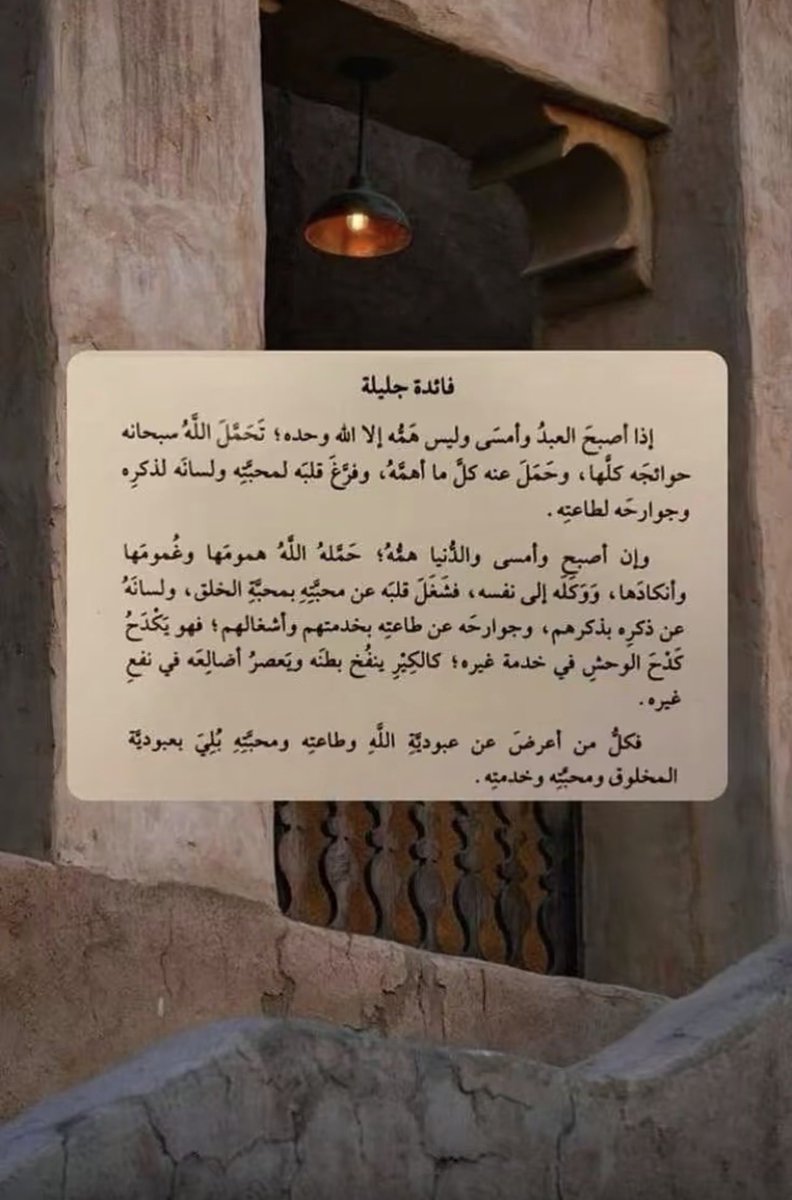 فائدة جليلة
إذا أصبحَ العبدُ وأمسَى وليس هَمُّه إلا الله وحده؛ تَحَمَّلَ اللَّهُ سبحانه
حوائجَه كلَّها، وحَمَلَ عنه كلَّ ما أهمَّهُ، وفرَّغَ قلبَه لمحبَّتِه ولسانَه لذكرِه
وجوارحَه لطاعتِه.
وإن أصبح وأمسى والدُّنيا همُّهُ؛ حَمَّلهُ اللَّهُ همومَها وغُمومَها
وأنكادَها، وَوَكَلَه إلى نفسه، فشَغَلَ قلبَه عن محبَّتِهِ بمحبَّةِ الخلق، ولسانَهُ
عن ذكرِه بذكرهم، وجوارحَه عن طاعتِه بخدمتهم وأشغالهم؛ فهو يَكْدَحُ
كَدْحَ الوحشِ في خدمة غيره؛ كالكِيْرِ ينفُخ بطنَه ويَعصرُ أضالِعَه في نفعِ
غيره.
فكلُّ من أعرضَ عن عبوديَّةِ اللَّهِ وطاعتِه ومحبَّتِهِ بُلِيَ بعبوديَّة
المخلوق ومحبَّتِه وخدمتِه.